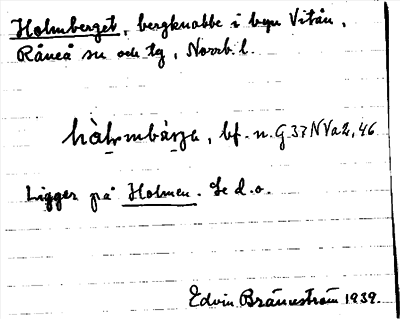 Holmberget, bergknabbe i byn Vitån,
Råneå sn och tg, Norrb. l.
hàlmbàrja, bf. n. G 37 N Va2, 46
Ligger på Holmen. Se d.o.
Edvin Brännström 1939.